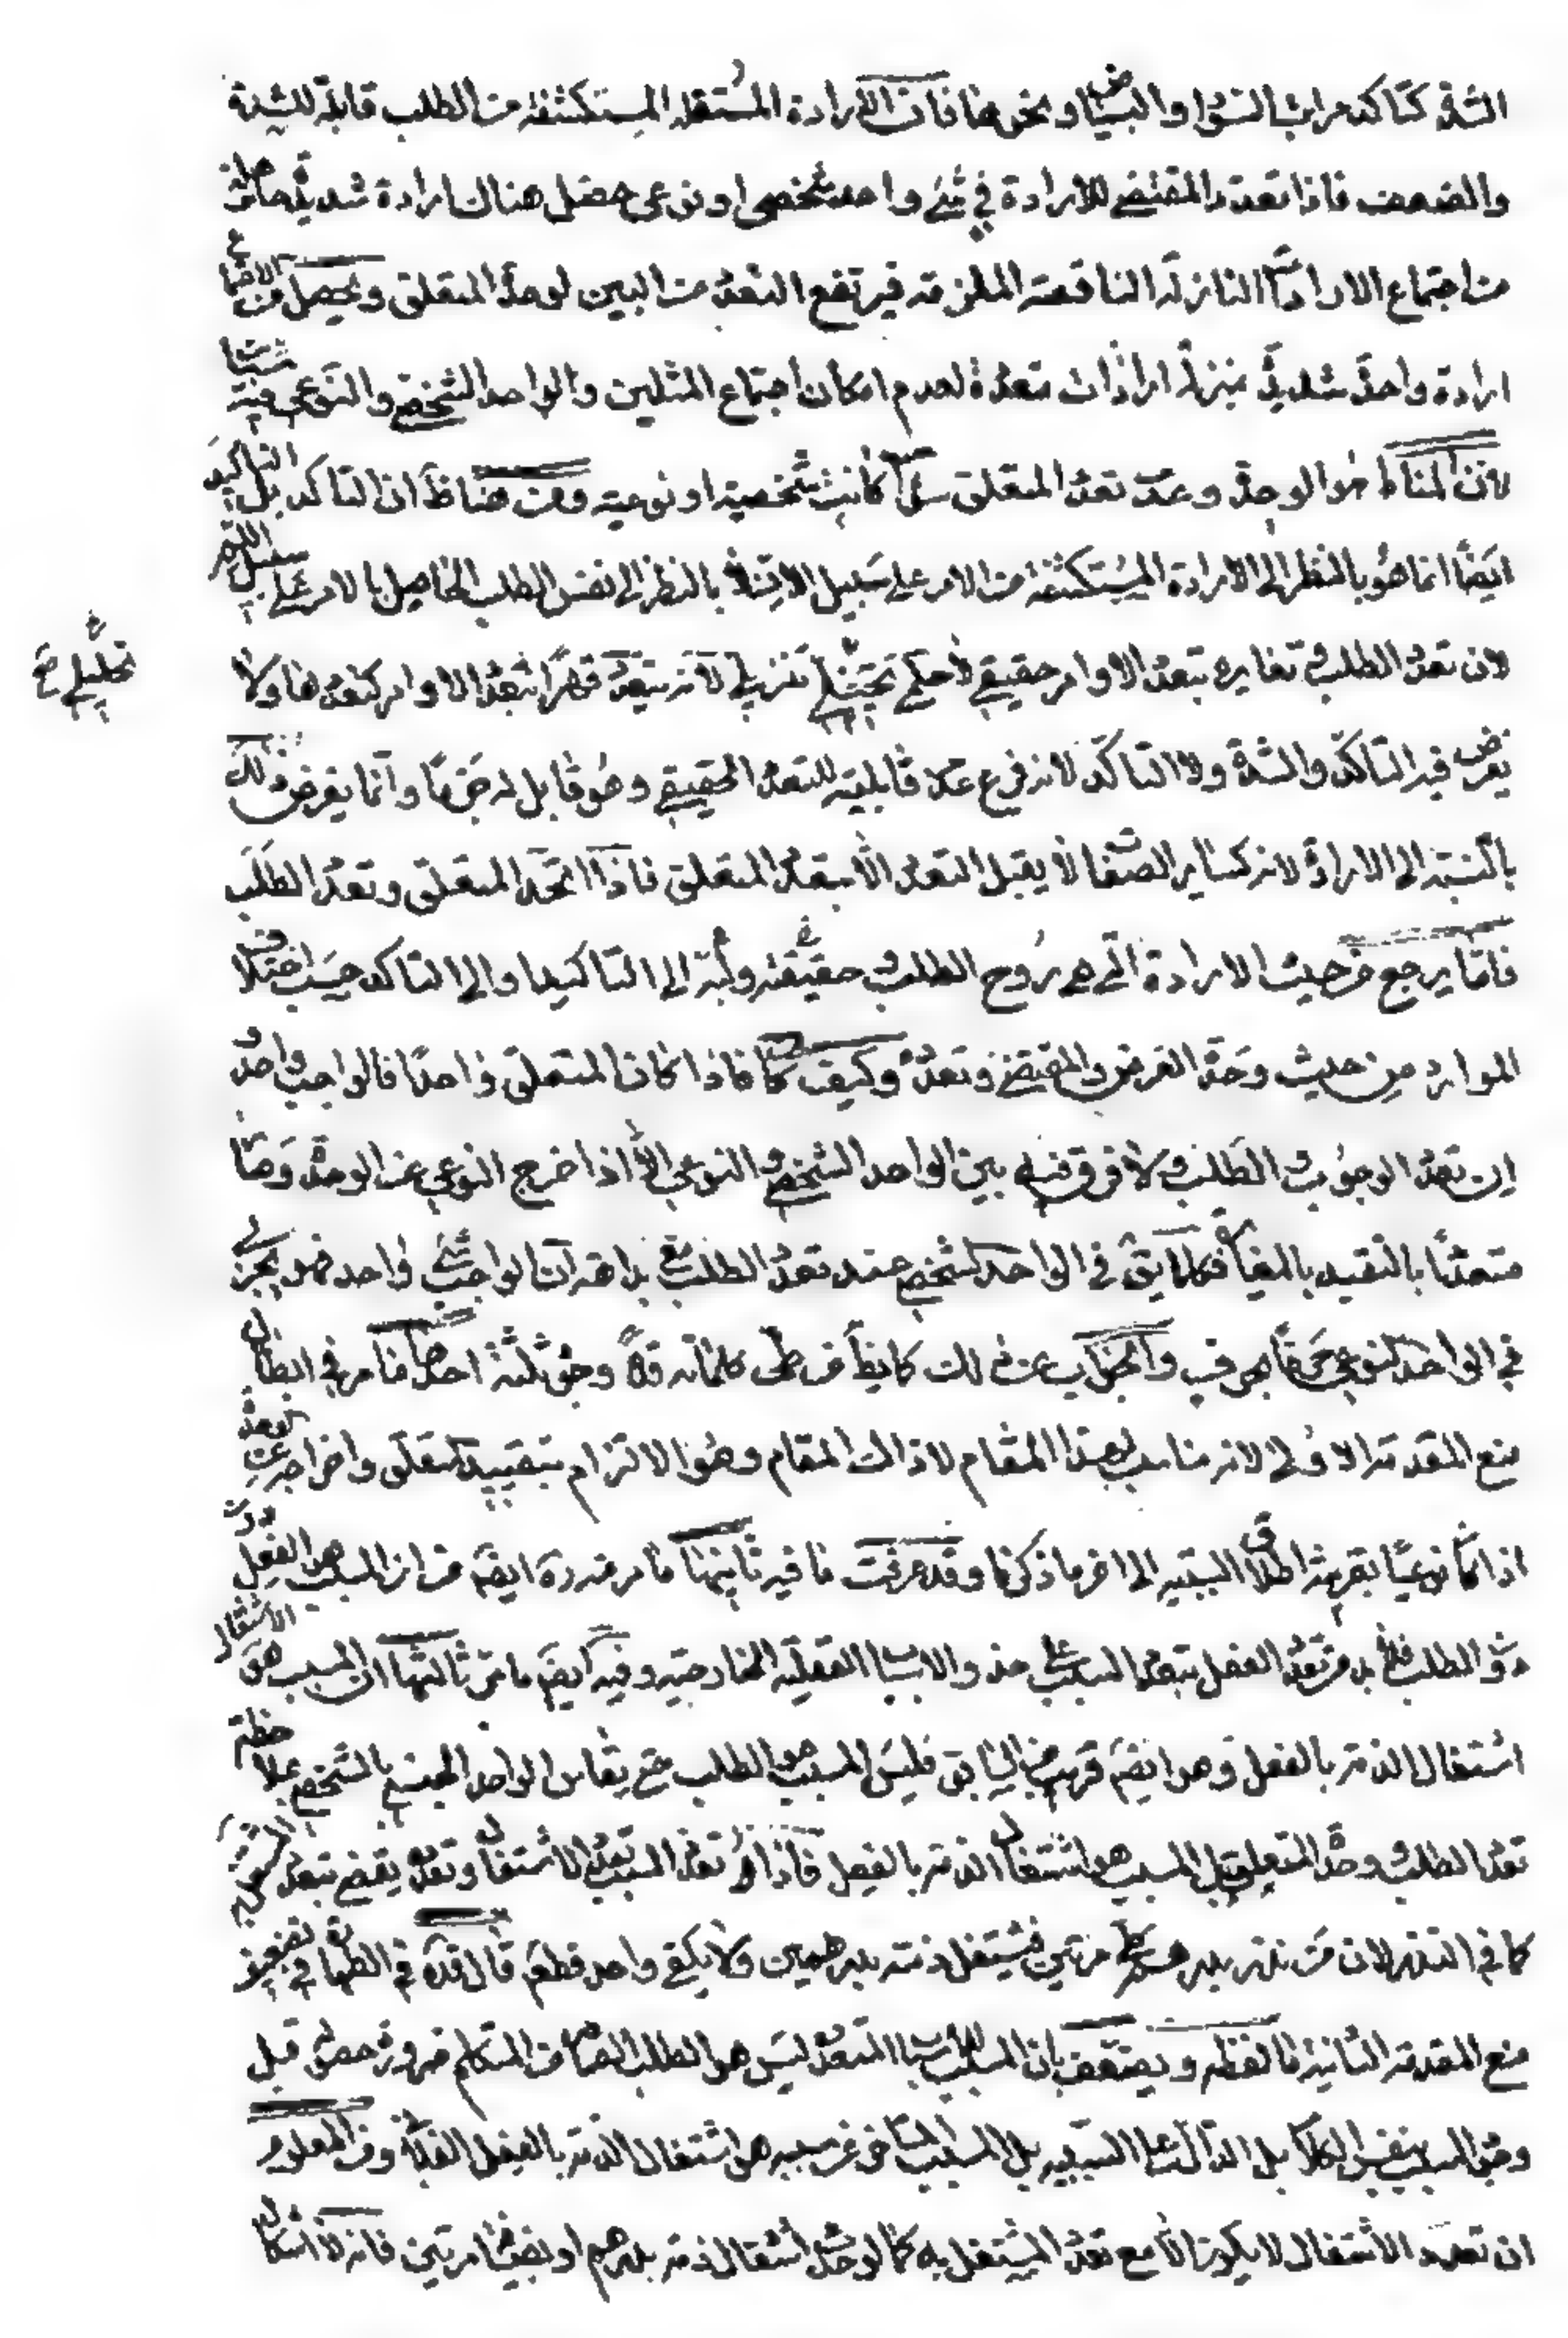 الشدة كتاكد مراتب السواد والبياض ونحوهما فان الارادة المستقلة المستكشفة من الطلب قابلة للشدة
والضعف فاذا تعدد المقتضى للارادة في شئ واحد شخصى او نوعى حصل هناك ارادة شديدة حاصلة
من اجتماع الارادات النازلة الناقصة الملزمة فيرتفع التعدد من البين لوحدة المتعلق ويحصل من الاجتماع
ارادة واحدة شديدة بمنزلة ارادات متعددة لعدم امكان اجتماع المثلين والواحد الشخصى والنوعى فيه سيان
لان المناط هو الوحدة وعدم تعدد المتعلق سواء كانت شخصية او نوعية ومن هنا ظ ان التاكد بل التاكيد
ايضا انما هو بالنظر الى الارادة المستكشفة من الامر على سبيل الان لا بالنظر الى نفس الطلب الحاصل بالامر على سبيل اللم
لان تعدد الطلب وتغايره بتعدد الاوامر حقيقى لا حكمى تنزيلى لانه يتعدد قهرا بتعدد الاوامر كتعددها ولا
تحليلى خ
يعرض فيه التاكد والشدة ولا التاكد لانه فرع عدم قابليته للتعدد الحقيقى وهو قابل له جزما وانما يعرض ذلك
بالنسبة الى الارادة لانه كساير الصفات لا يقبل التعدد الا بتعدد المتعلق فاذا اتحد المتعلق وتعدد الطلب
فانما يرجع من حيث الارادة التى هى روح الطلب وحقيقته ولبه الى التاكيد او الى التاكد حسب اختلاف
الموارد من حيث وحدة الغرض والمقتضى وتعدده وكيف كان فاذا كان المتعلق واحدا فالواجب واحد
ان تعدد الوجوب والطلب ولا فرق فيه بين الواحد الشخصى والنوعى الا اذا خرج النوعى عن الوحدة وصار
متعددا بالتقييد بالمغاير فكلما يق في الواحد الشخصى عند تعدد الطلب بداهة ان الواجب شئ واحد فهو يجرى
في الواحد النوعى حرفا بحرف والجواب عن ذلك كما يظ من طى كلماته قده وجوه ثلثة احدها ما مر في ابطال
منع المقدمة الاولى لانه مناسب لهذا المقام لا ذاك المقام وهو الالتزام بتقييد المتعلق واخراجه عن الوحدة
اذا كان نوعيا بقرينة اطلاق السببية الى اخر ما ذكرنا وقد عرفت ما فيه ثانيها ما مر منه ره ايضا من ان المسبب هو الفعل دون
الطلب فلا بد من تعدد الفعل بتعدد السبب على حذو الاسباب العقلية الخارجية وفيه ايضا ما مر ثالثها ان المسبب هو الاشتغال
اشتغال الذمة بالفعل وهو ايضا قريب من السابق فليس المسبب هو الطلب حتى يقاس الواحد الجنسى بالشخصى بملاحظة
تعدد الطلب وحدة المتعلق بل المسبب هو اشتغال الذمة بالفعل فاذا تعدد السبب تعدد الاشتغال وتعدده يقضى بتعدد المشتغل به
كما في النذر لان من نذر بدرهم مرتين فيشتغل ذمته بدرهمين ولا يكفى واحد قطعا قال قده في الطهارة في تضعيف
منع المقدمة الثانية ما لفظه ويضعف بان المسبب للاسباب المتعدد ليس هو الطلب الصادر من المتكلم ضرورة حصوله قبل
وجود السبب بنفس الكلام بل الدال على السببية بل المسبب المتاخر عن سببه هو اشتغال الذمة بالفعل الفلانى ومن المعلوم
ان تعدد الاشتغال لا يكون الا مع تعدد المشتغل به كما لو وجد اشتغال ذمته بدرهم او بضرب مرتين فانه لا اشكال